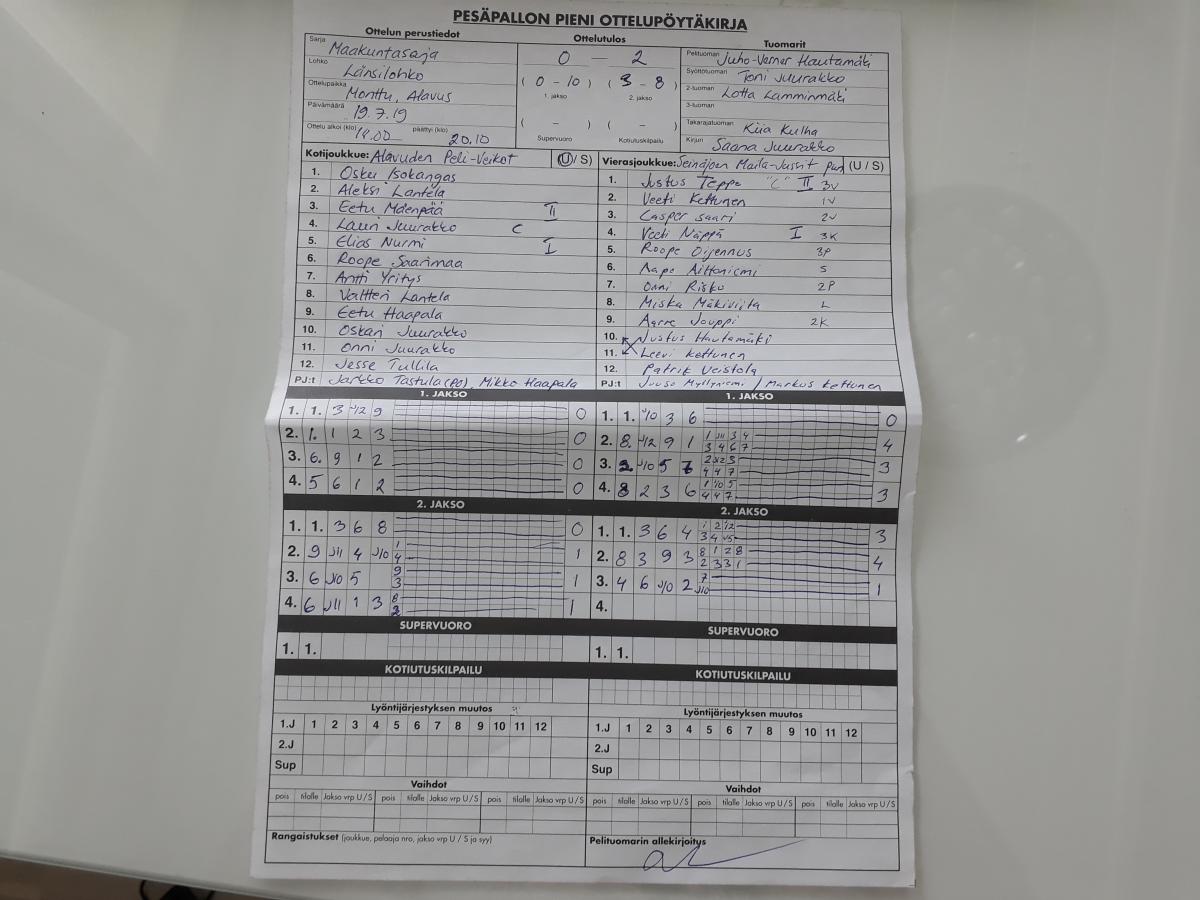 PESÄPALLON PIENI OTTELUPÖYTÄKIRJA
Ottelun perustiedot Ottelutulos Tuomarit
Sarja Maakuntasarja
Lohko Länsilohko
Ottelupaikka Monttu, Alavus
Päivämäärä 19.7.19
Ottelu alkoi (klo) 18.00 päättyi (klo) 20.10
0 — 2
( 0 - 10 ) ( 3 - 8 )
1. jakso 2. jakso
( - ) ( - )
Supervuoro Kotiutuskilpailu
Pelituomari Juho-Verner Hautamäki
Syöttötuomari Toni Juurakko
2-tuomari Lotta Lamminmäki
3-tuomari
Takarajatuomari Kiia Kulha
Kirjuri Saana Juurakko
Kotijoukkue: Alavuden Peli-Veikot (U/ S)
1. Osku Isokangas
2. Aleksi Lantela
3. Eetu Mäenpää II
4. Lauri Juurakko C
5. Elias Nurmi I
6. Roope Saarimaa
7. Antti Yritys
8. Valtteri Lantela
9. Eetu Haapala
10. Oskari Juurakko
11. Onni Juurakko
12. Jesse Tullila
PJ:t Jarkko Tastula (PJ), Mikko Haapala
Vierasjoukkue: Seinäjoen Maila-Jussit pun (U / S)
1. Justus Teppo "C" II 3V
2. Veeti Kettunen 1V
3. Casper Saari 2V
4. Veeti Näppä I 3K
5. Roope Oijennus 3P
6. Aapo Nittoniemi S
7. Onni Risku 2P
8. Miska Mäkiviita L
9. Aarre Jouppi 2K
10. Justus Hautamäki
11. Leevi Kettunen
12. Patrik Veistola
PJ:t Juuso Myllyniemi / Markus Kettunen
1. JAKSO
1. 1. 3 J12 9 0
2. 1. 1 2 3 0
3. 6. 9 1 2 0
4. 5 6 1 2 0
2. JAKSO
1. 1. 3 6 8 0
2. 9 J11 4 J10 1 4 1
3. 6 J10 5 9 3 1
4. 6 J11 1 3 8 2 1
SUPERVUORO
1. 1.
KOTIUTUSKILPAILU
Lyöntijärjestyksen muutos
1.J 1 2 3 4 5 6 7 8 9 10 11 12
2.J
Sup
Vaihdot
pois tilalle Jakso vrp U / S pois tilalle Jakso vrp U / S pois tilalle Jakso vrp U / S
Rangaistukset (joukkue, pelaaja nro, jakso vrp U / S ja syy)
1. JAKSO
1. 1. J10 3 6 0
2. 8. J12 9 1 1 J11 3 4 4
3 4 6 7
3. J10 5 7 3
4 4 7
4. 8 2 3 6 1 10 5 3
4 4 7
2. JAKSO
1. 1. 3 6 4 1 2 12 3
3 4 J5
2. 8 3 9 3 8 1 2 8 4
2 3 3 1
3. 4 6 J10 2 7 1
J10
4.
SUPERVUORO
1. 1.
KOTIUTUSKILPAILU
Lyöntijärjestyksen muutos
1.J 1 2 3 4 5 6 7 8 9 10 11 12
2.J
Sup
Vaihdot
pois tilalle Jakso vrp U / S pois tilalle Jakso vrp U / S pois tilalle Jakso vrp U / S
Pelituomarin allekirjoitys